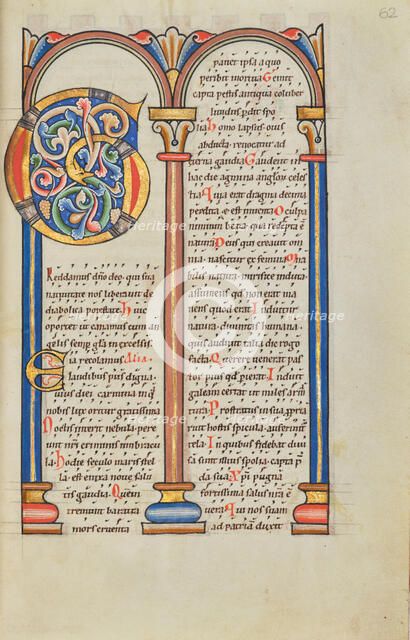 62
G
Reddamus dño deo. qui sua
natiuitate nos liberauit de
diabolica potestate. Huic
oportet ut canamus cum an
gelis semp gła in excelsis.
Eia recolamus Alia.
laudibus piis digna.
huius diei carmina in q̄
nobis lux oritur gratissima
Noctis interit nebula. pere
unt nr̄i criminis umbracu
la. Hodie seculo maris stel
la. est enixa noue salu
tis gaudia. Quem
tremunt baratra
mors cruenta
pauet ipsa a quo
peribit mortua Gemit
capta pestis antiqua coluber
liuidus pdit spo
lia Homo lapsus ouis
abducta reuocatur ad
eterna gaudia Gaudent in
hac die agmina angłoꝝ celes
tia. Quia erat dragma decima
perdita. & est inuenta O culpa
nimium beata qua redepta ē
natura. Deus qui creauit om
nia. nascitur ex femina Mi
rabilis natura mirifice induta
assumens qđ non erat ma
nens quod erat. Induitur
natura. diuinitas humana
quis audiuit talia dic rogo
facta. Querere uenerat pas
tor pius qđ pierat. Induit
galeam certat ut miles arma
tura. Prostratus in sua ppria
ruit hostis spicula. auferunt
tela. In quibus fidebat diui
sa sunt illius spolia. capta p̄
da sua. Xp̄i pugna
fortissima salus nr̄a ē
uera Qui nos suam
ad patriam duxit
Heritage
Images